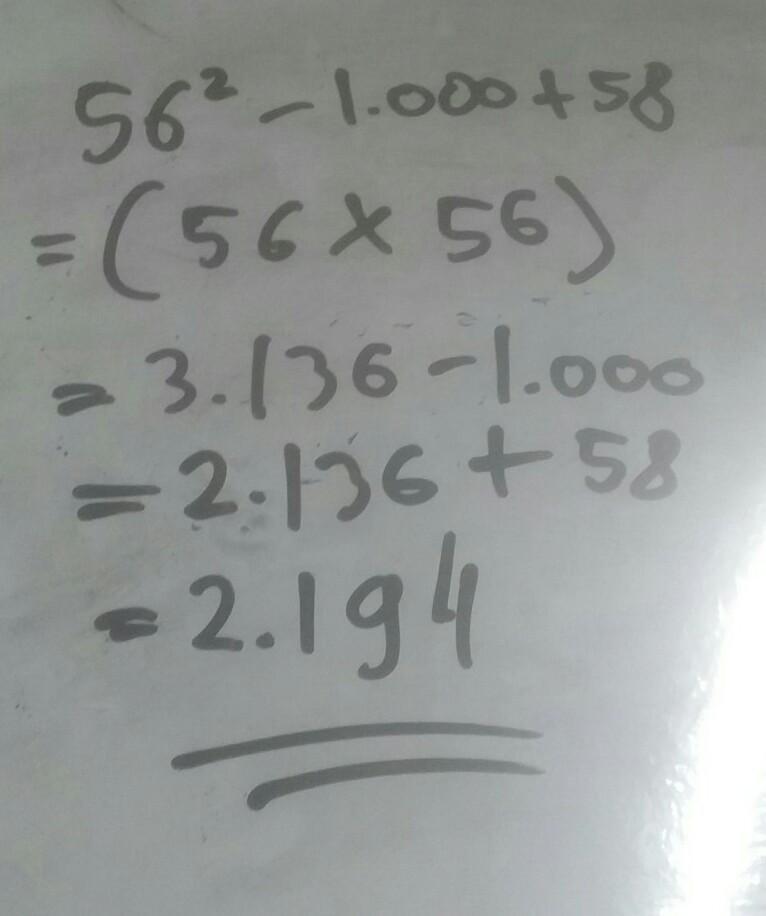 56² - 1.000 + 58
= (56 × 56)
= 3.136 - 1.000
= 2.136 + 58
= 2.194